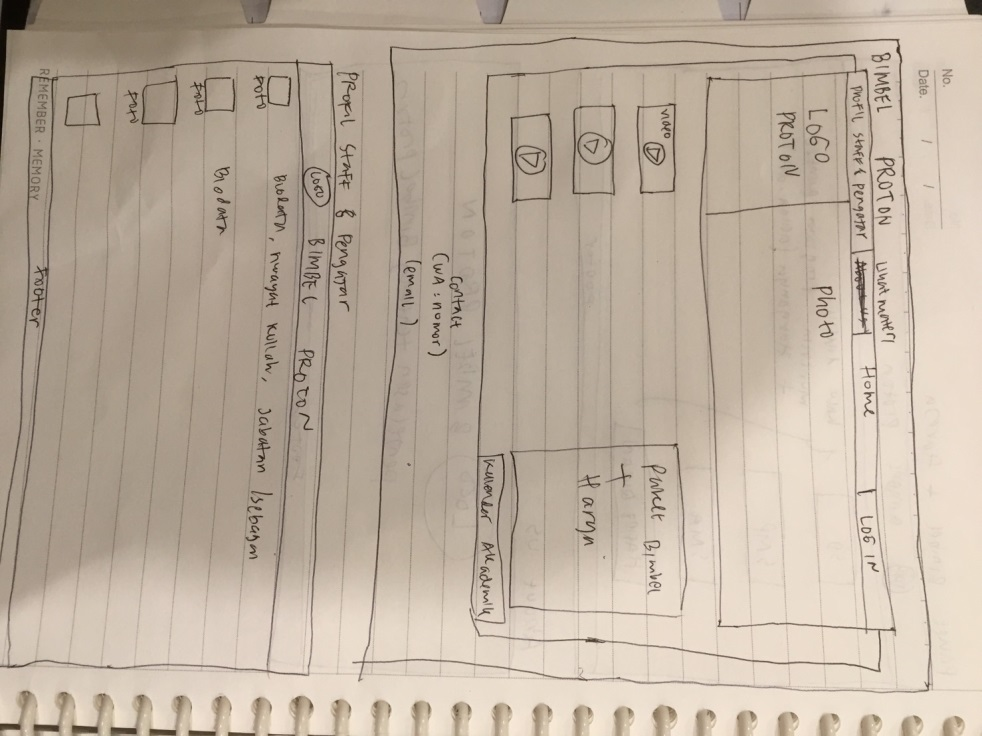 No.
Date.
BIMBEL PROTON Lihat materi
Profil Staff & Pengajar | About us | Home | LOG IN
LOGO
PROTON
Photo
video
Paket Bimbel
+
Harga
Kalender Akademik
Contact
(WA : nomor)
(email)
Profil Staff & Pengajar
LOGO BIMBEL PROTON
FOTO
Biodata, riwayat kuliah, Jabatan /sebagai
FOTO
Biodata
FOTO
Footer
REMEMBER · MEMORY